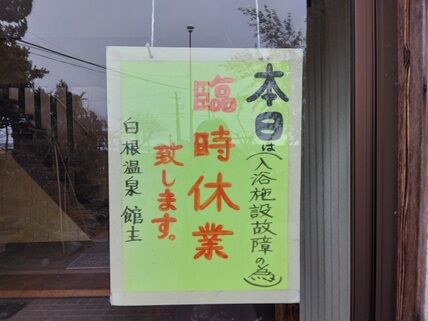 本日は(入浴施設故障の為)
臨時休業
致します。
白根温泉 館主